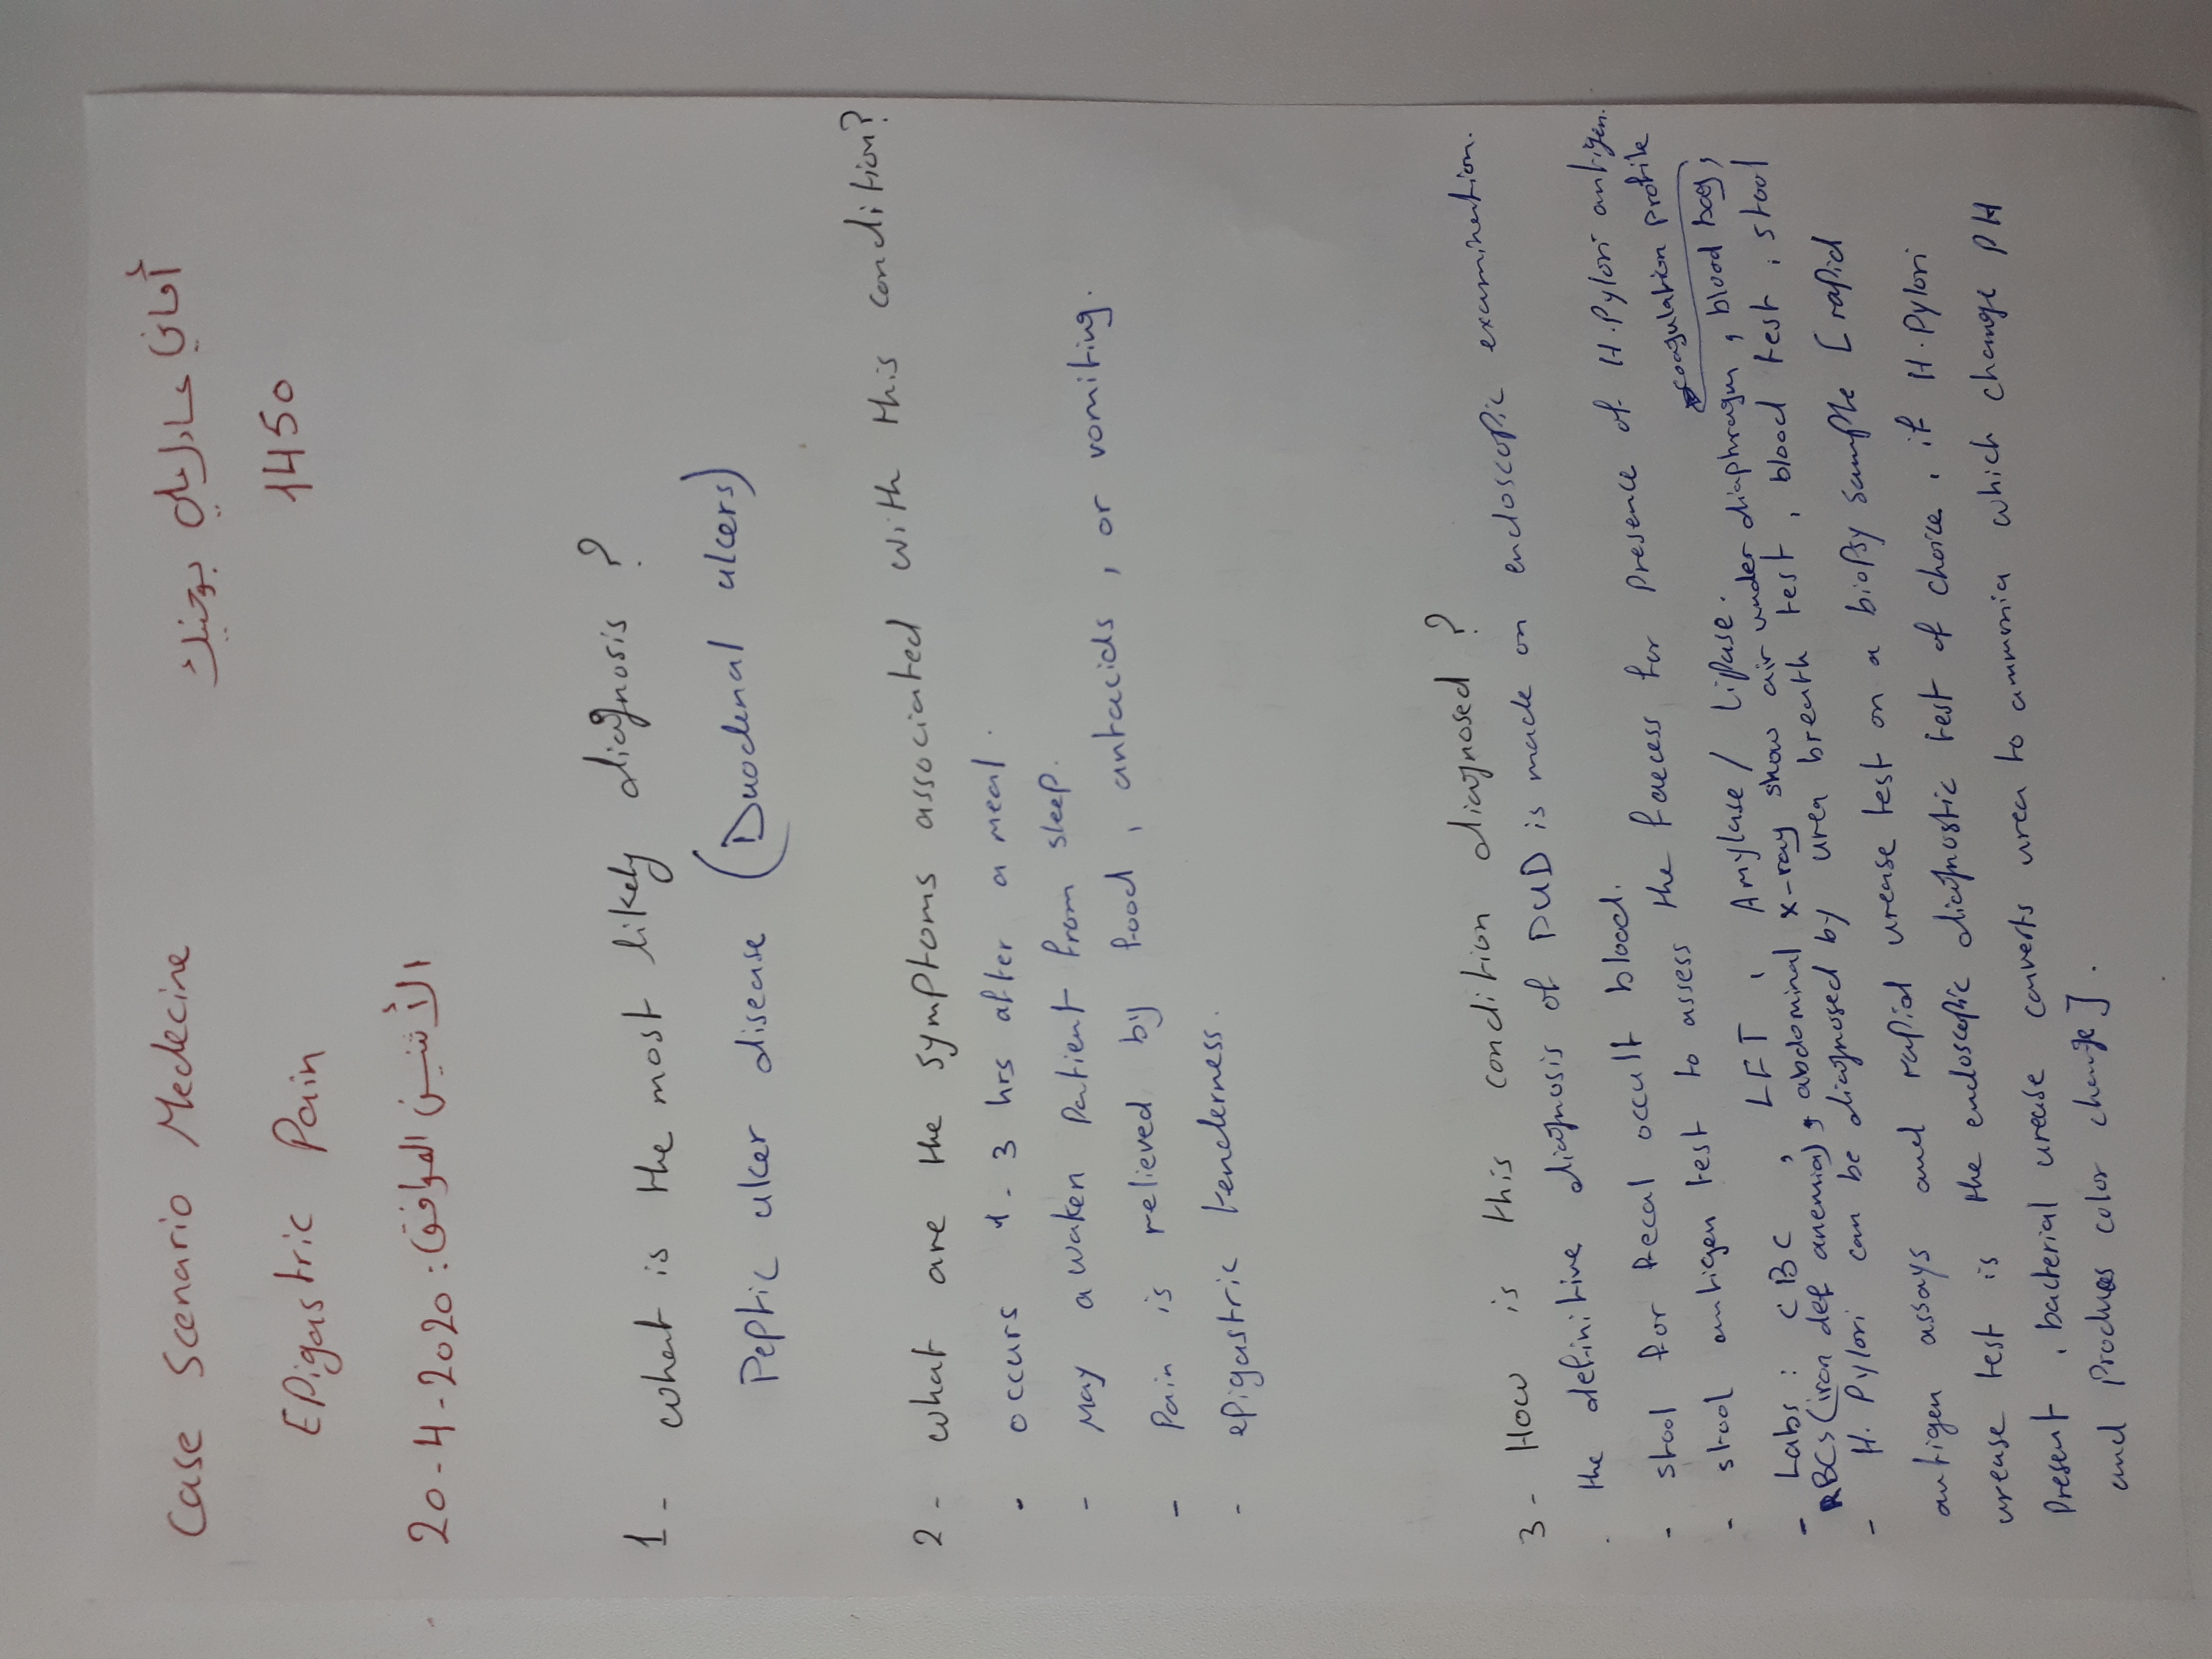 Case Scenario Medecine
أماني عادل علي بوتيتك
Epigastric Pain
1450
20-4-2020 : الأثنين الموافق
1- what is the most likely diagnosis ?
Peptic ulcer disease (Duodenal ulcers)
2- what are the symptoms associated with this condition?
• occurs 1-3 hrs after a meal.
- May awaken patient from sleep.
- Pain is relieved by food, antacids, or vomiting.
- epigastric tenderness.
3- How is this condition diagnosed ?
. the definitive diagnosis of PUD is made on endoscopic examination.
- stool for fecal occult blood.
- stool antigen test to assess the faeces for presence of H.Pylori antigen.
- Labs : CBC , LFT , Amylase / Lipase. coagulation profile
RBCs (iron def anemia), abdominal x-ray show air under diaphragm, blood
- H. Pylori can be diagnosed by urea breath test, blood test, stool
antigen assays and rapid urease test on a biopsy sample [rapid
urease test is the endoscopic diagnostic test of choice, if H.Pylori
present, bacterial urease converts urea to ammonia which change PH
and produces color change].